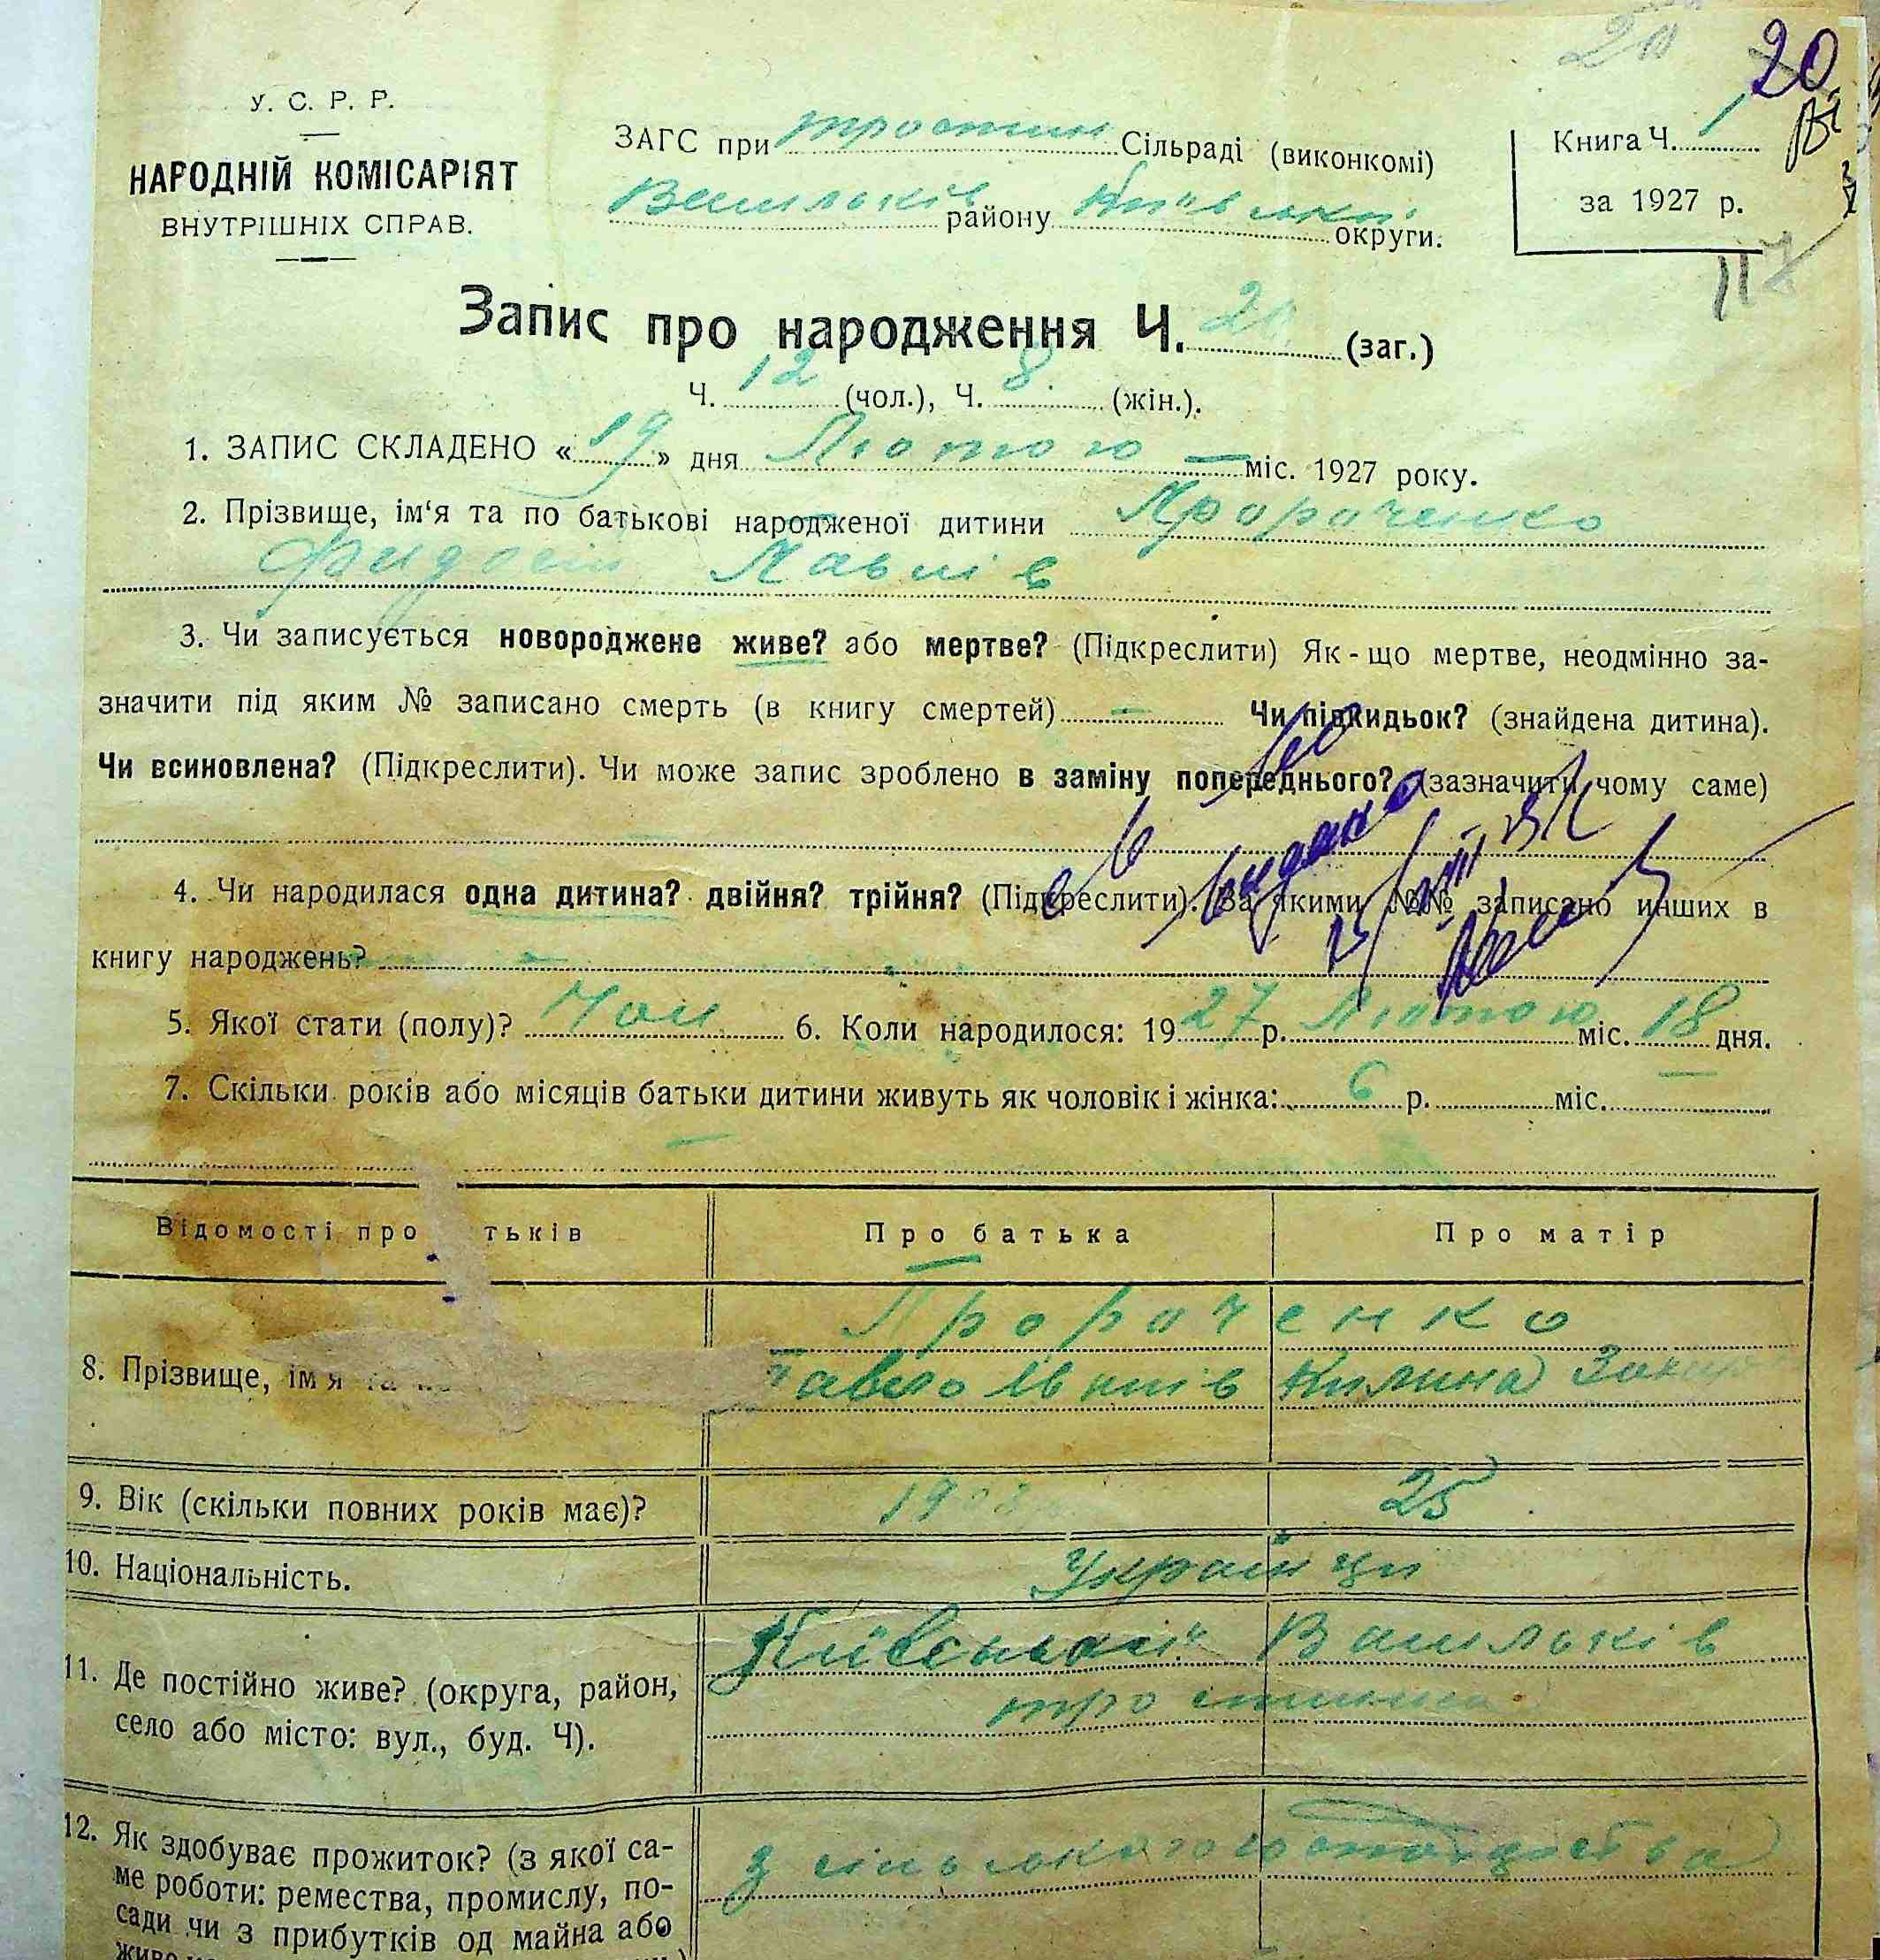 20
20
У. С. Р. Р.
НАРОДНІЙ КОМІСАРІЯТ
ВНУТРІШНІХ СПРАВ.
ЗАГС при тростин Сільраді (виконкомі)
Васильків району Київської округи.
Книга Ч. 1
за 1927 р.
117
Запис про народження Ч. 20 (заг.)
Ч. 12 (чол.), Ч. 8 (жін.).
1. ЗАПИС СКЛАДЕНО «19» дня Лютого міс. 1927 року.
2. Прізвище, ім‘я та по батькові народженої дитини Прораченко
Павлів
3. Чи записується новороджене живе? або мертве? (Підкреслити) Як-що мертве, неодмінно за-
значити під яким № записано смерть (в книгу смертей) — Чи підкидьок? (знайдена дитина).
Чи всиновлена? (Підкреслити). Чи може запис зроблено в заміну попереднього? (зазначити чому саме)
4. Чи народилася одна дитина? двійня? трійня? (Підкреслити). За якими №№ записано инших в
книгу народжень? —
видано
5. Якої стати (полу)? Чол 6. Коли народилося: 1927 р. Лютого міс. 18 дня.
7. Скільки років або місяців батьки дитини живуть як чоловік і жінка: 6 р. міс.
Відомості про тьків Про батька Про матір
Прораченко
8. Прізвище, ім'я та Павло Іванів Килина
9. Вік (скільки повних років має)? 25
10. Національність. Українци
11. Де постійно живе? (округа, район,
село або місто: вул., буд. Ч).
Київської Васильків
тростинка
12. Як здобуває прожиток? (з якої са-
ме роботи: ремества, промислу, по-
сади чи з прибутків од майна або
з сільського господарства